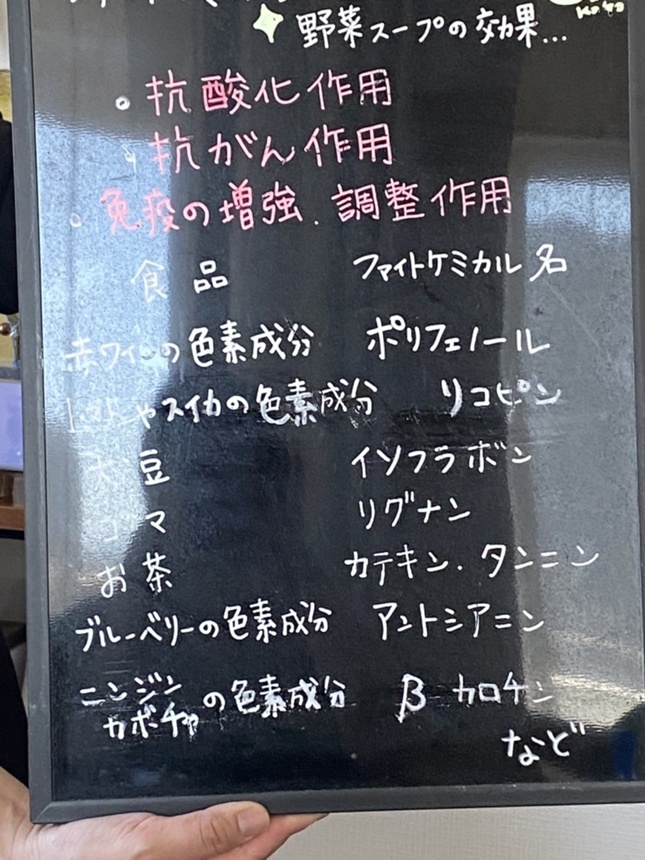 野菜スープの効果...
。抗酸化作用
。抗がん作用
。免疫の増強.調整作用
食品 ファイトケミカル名
赤ワインの色素成分 ポリフェノール
トマトやスイカの色素成分 リコピン
大豆 イソフラボン
ゴマ リグナン
お茶 カテキン.タンニン
ブルーベリーの色素成分 アントシアニン
ニンジン
カボチャの色素成分 β カロチン
など